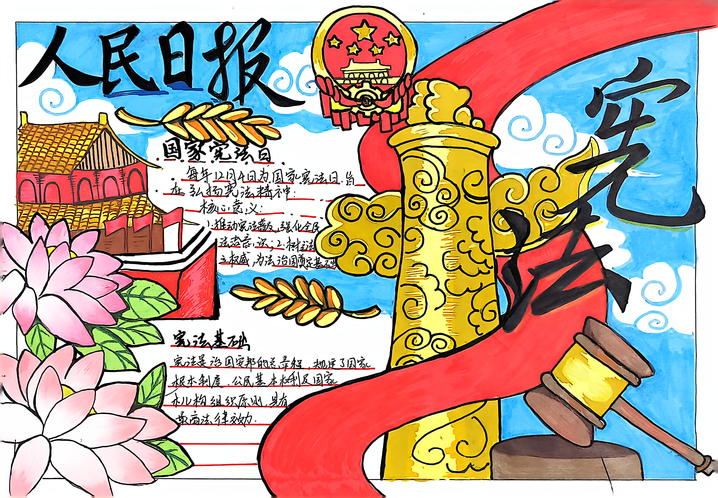 人民日报
宪法
国家宪法日
每年12月4日为国家宪法日,旨
在弘扬宪法精神.
核心意义:
1.推动宪法普及,强化全民
法治意识;2.树立法
之权威,为法治国奠定基
宪法基础
宪法是治国安邦的总章程,规定了国家
根本制度、公民基本权利及国家
机构组织原则,具有
最高法律效力.